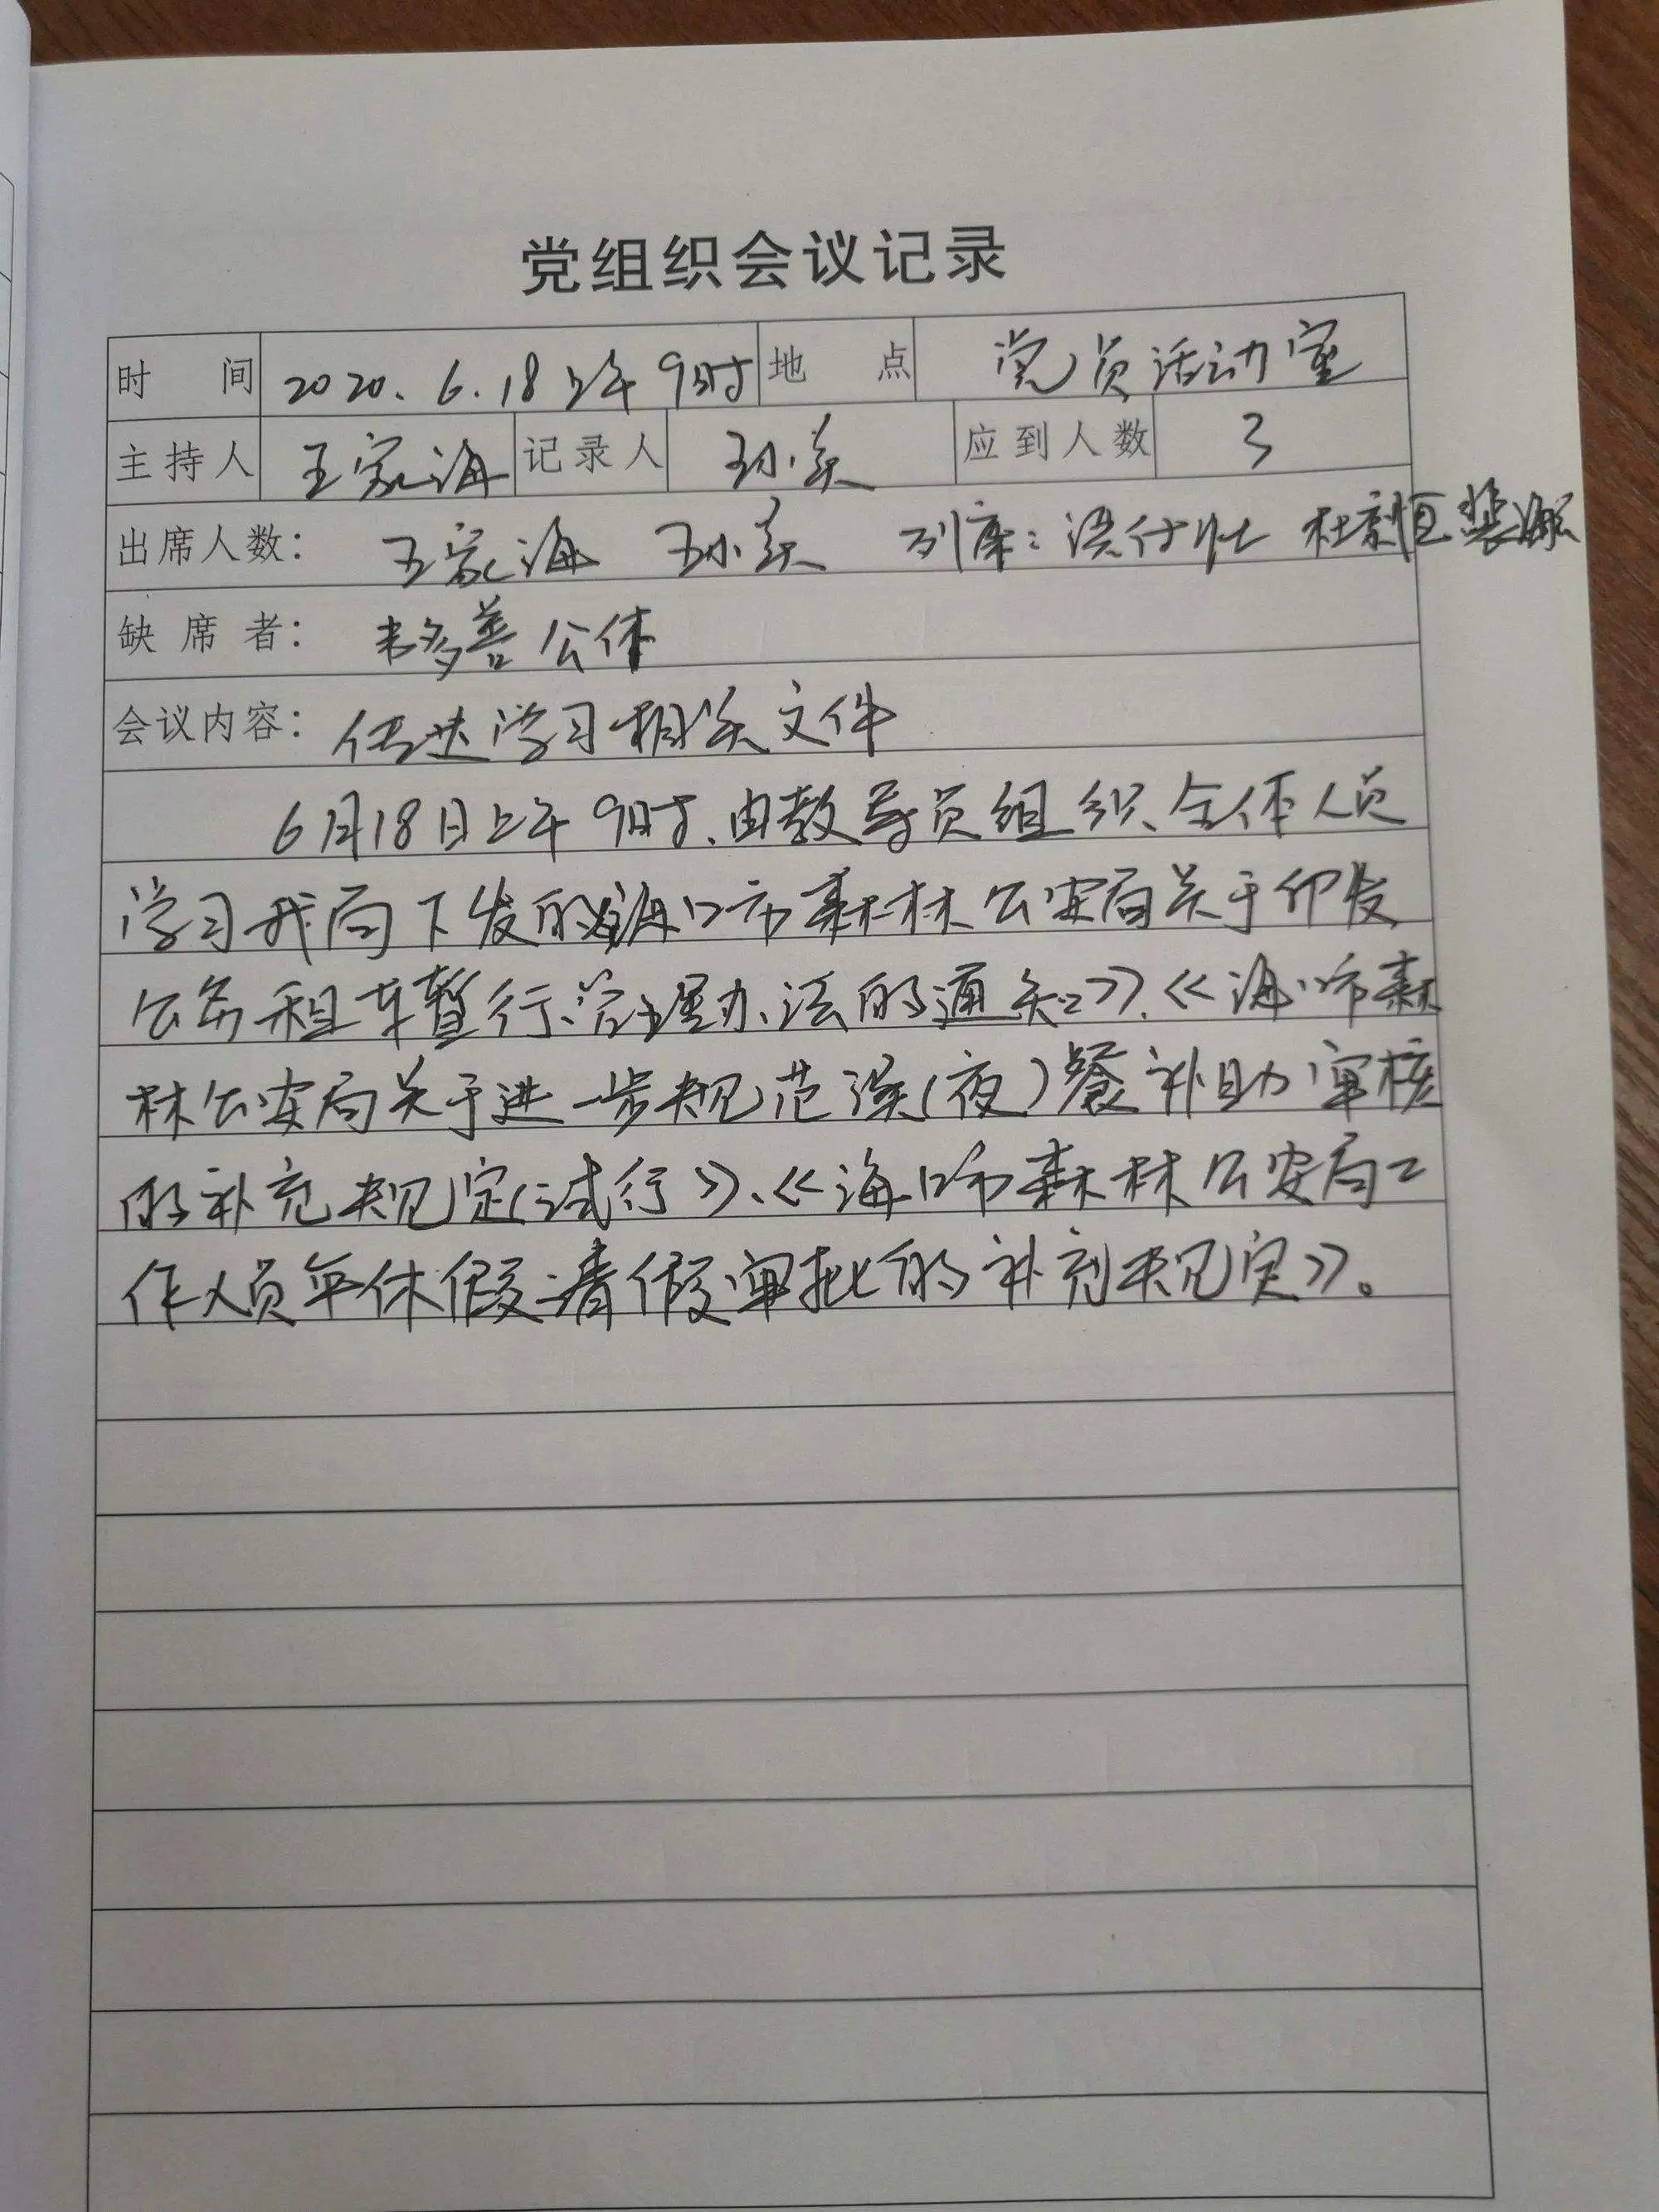 党组织会议记录
时间 2020.6.18上午9时 地点 党员活动室
主持人 王家海 记录人 孙美 应到人数 3
出席人数: 王家海 孙美 列席: 杜 恒 裴
缺席者: 善 公休
会议内容: 传达学习相关文件
6月18日上午9时、由教导员组织、全体人员
学习我局下发的《海口市森林公安局关于印发
公务租车暂行管理办法的通知》、《海口市森
林公安局关于进一步规范误(夜)餐补助审核
的补充规定(试行)》、《海口市森林公安局工
作人员年休假请假审批的补充规定》。